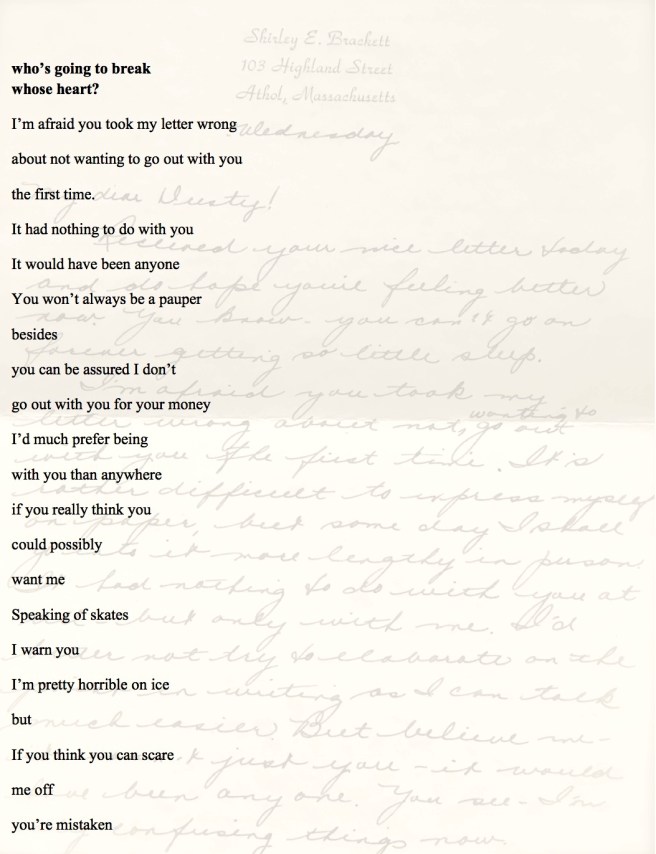 who's going to break
whose heart?
I'm afraid you took my letter wrong
about not wanting to go out with you
the first time.
It had nothing to do with you
It would have been anyone
You won't always be a pauper
besides
you can be assured I don't
go out with you for your money
I'd much prefer being
with you than anywhere
if you really think you
could possibly
want me
Speaking of skates
I warn you
I'm pretty horrible on ice
but
If you think you can scare
me off
you're mistaken
Shirley E. Brackett
103 Highland Street
Athol, Massachusetts
Wednesday
My dear Dusty!
Received your nice letter today
and do hope you're feeling better
now. You know - you can't go on
forever getting so little sleep.
I'm afraid you took my
wanting to
letter wrong about not, go out
with you the first time. It's
rather difficult to express myself
on paper, but some day I shall
go into it more lengthy in person.
It had nothing to do with you at
but only with me. I'd
rather not try to elaborate on the
in writing as I can talk
much easier. But believe me-
just you - it would
have been anyone. You see - I'm
confusing things now.